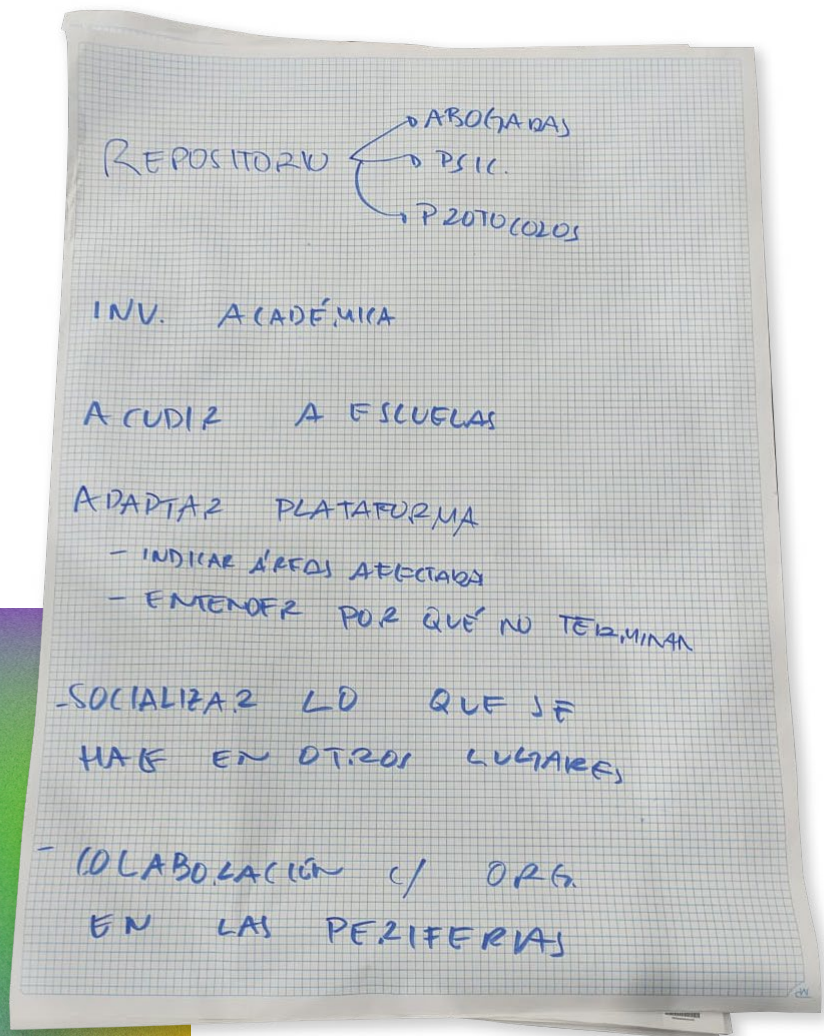 REPOSITORIO
ABOGADAS
PSIC.
PROTOCOLOS
INV. ACADÉMICA
ACUDIR A ESCUELAS
ADAPTAR PLATAFORMA
- INDICAR ÁREAS AFECTADA
- ENTENDER POR QUÉ NO TERMINAN
- SOCIALIZAR LO QUE SE
HACE EN OTROS LUGARES
- COLABORACIÓN C/ ORG.
EN LAS PERIFERIAS